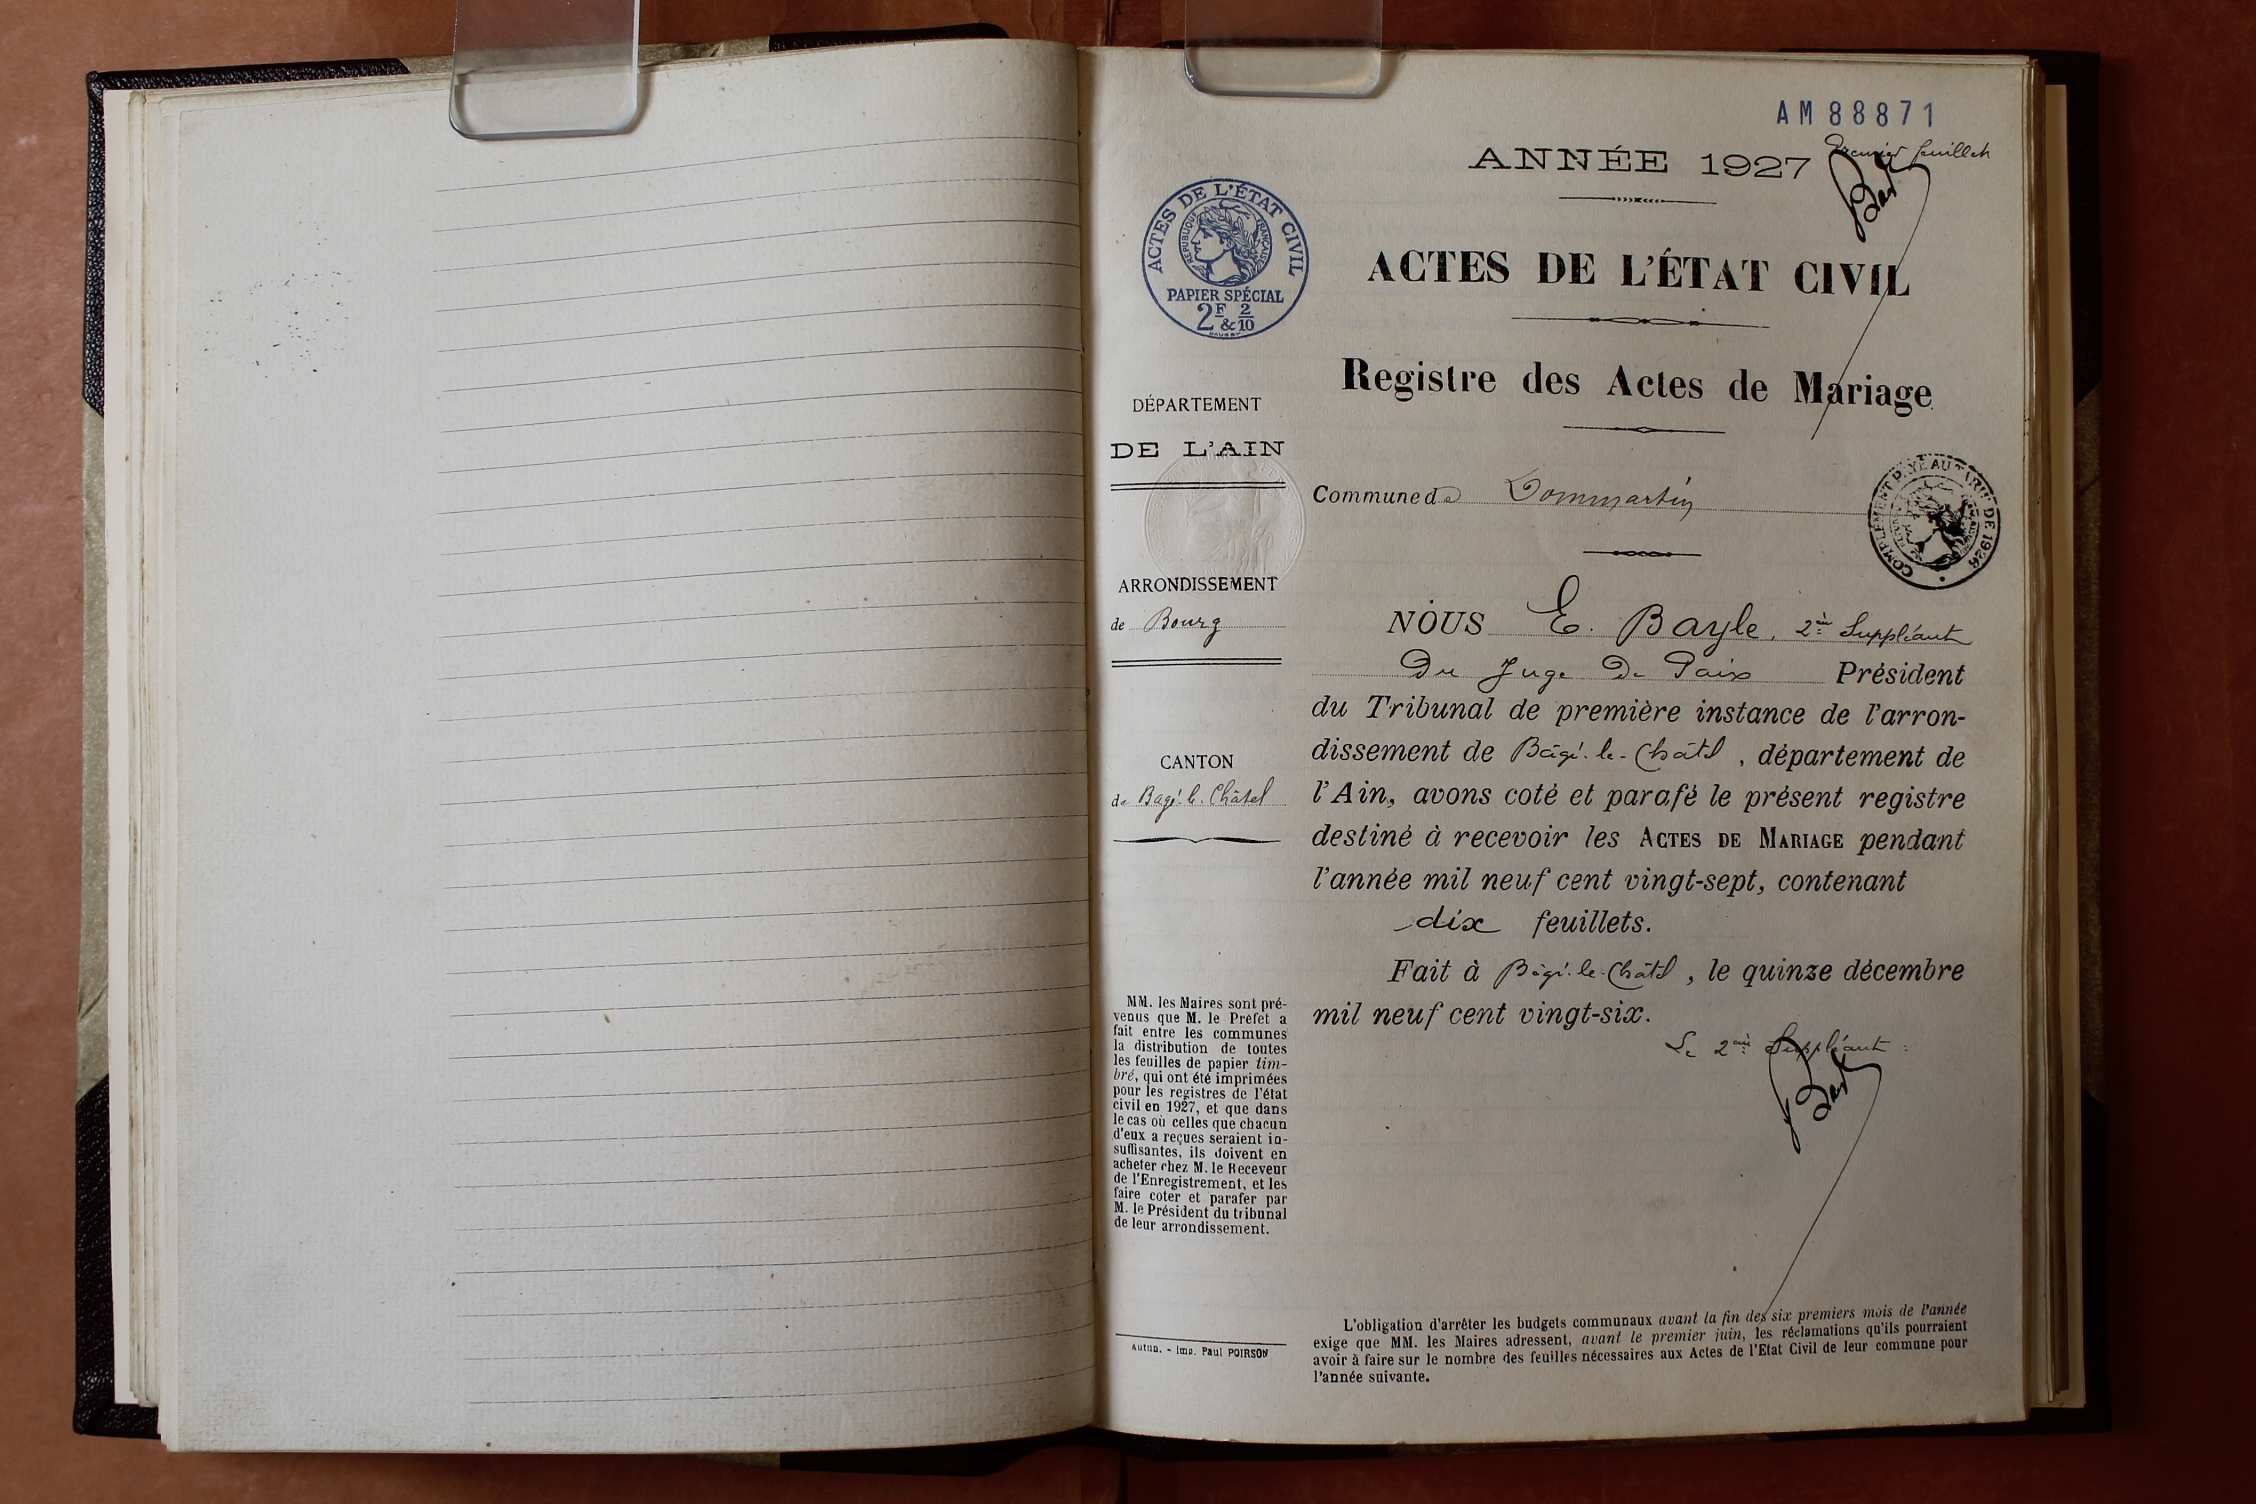 AM 88871
ANNÉE 1927
Premier feuillet
ACTES DE L'ÉTAT CIVIL
RÉPUBLIQUE FRANÇAISE
PAPIER SPÉCIAL
2F & 2/10
ACTES DE L'ÉTAT CIVIL
Registre des Actes de Mariage
DÉPARTEMENT
DE L'AIN
Commune de Dommartin
COMPLÉMENT PAYÉ AU TARIF DE 1926
ARRONDISSEMENT
de Bourg
CANTON
de Bagé-le-Châtel
MM. les Maires sont pré-
venus que M. le Préfet a
fait entre les communes
la distribution de toutes
les feuilles de papier tim-
bré, qui ont été imprimées
pour les registres de l'état
civil en 1927, et que dans
le cas où celles que chacun
d'eux a reçues seraient in-
suffisantes, ils doivent en
acheter chez M. le Receveur
de l'Enregistrement, et les
faire coter et parafer par
M. le Président du tribunal
de leur arrondissement.
Autun. - Imp. Paul POIRSON
NOUS E. Bayle, 2ème Suppléant
Du Juge De Paix Président
du Tribunal de première instance de l'arron-
dissement de Bâgé-le-Châtel, département de
l'Ain, avons coté et parafé le présent registre
destiné à recevoir les ACTES DE MARIAGE pendant
l'année mil neuf cent vingt-sept, contenant
dix feuillets.
Fait à Bâgé-le-Châtel, le quinze décembre
mil neuf cent vingt-six.
Le 2ème Suppléant :
L'obligation d'arrêter les budgets communaux avant la fin des six premiers mois de l'année
exige que MM. les Maires adressent, avant le premier juin, les réclamations qu'ils pourraient
avoir à faire sur le nombre des feuilles nécessaires aux Actes de l'Etat Civil de leur commune pour
l'année suivante.